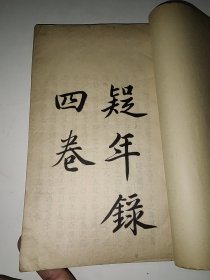 疑年錄
四卷